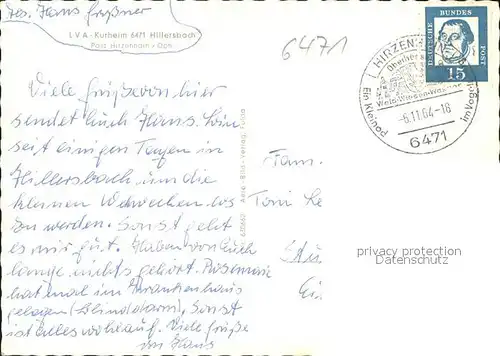 Abs. Hans Greßner
LVA-Kurheim 6471 Hillersbach
Post Hirzenhain v. Oph.
6471
Viele Grüße von hier
sendet Euch Hans. Bin
seit einigen Tagen in
Hillersbach um die
kleinen Wehwechen los
zu werden. Sonst geht
es mir gut. Haben von Euch
lange nichts gehört. Rosemarie
hat mal im Krankenhaus
gelegen (Blinddarm), sonst
ist alles wohlauf. Viele Grüße
Hans
Bild - Verlag, Fulda
DEUTSCHE BUNDESPOST
15
HIRZENHAIN
Oberhessen
Ein Kleinod
im Vogel
-6.11.64-18
6471
Fam.
Toni
privacy protection
Datenschutz